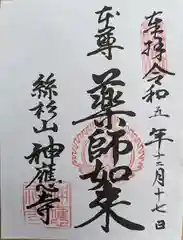 奉拝 令和五年十二月十七日
本尊
薬師如来
絲杉山 神應寺